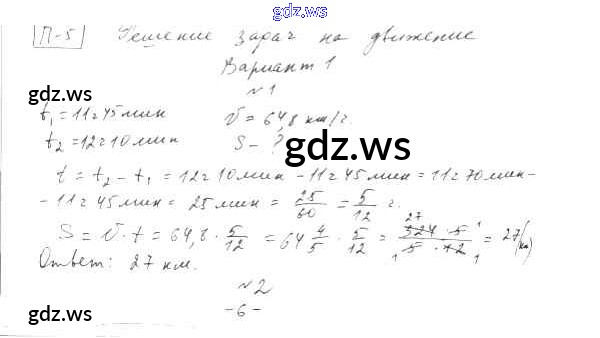 gdz.ws
П-5 Решение задач на движение
Вариант 1
№1
gdz.ws
t₁ = 11 ч 45 мин V = 64,8 км/ч.
t₂ = 12 ч 10 мин S - ?
gdz.ws
t = t₂ - t₁ = 12 ч 10 мин - 11 ч 45 мин = 11 ч 70 мин -
- 11 ч 45 мин = 25 мин = 25/60 = 5/12 ч.
S = V · t = 64,8 · 5/12 = 64 4/5 · 5/12 = 324 · 5 / 5 · 12 = 27 (км)
Ответ: 27 км.
№2
gdz.ws
-6-